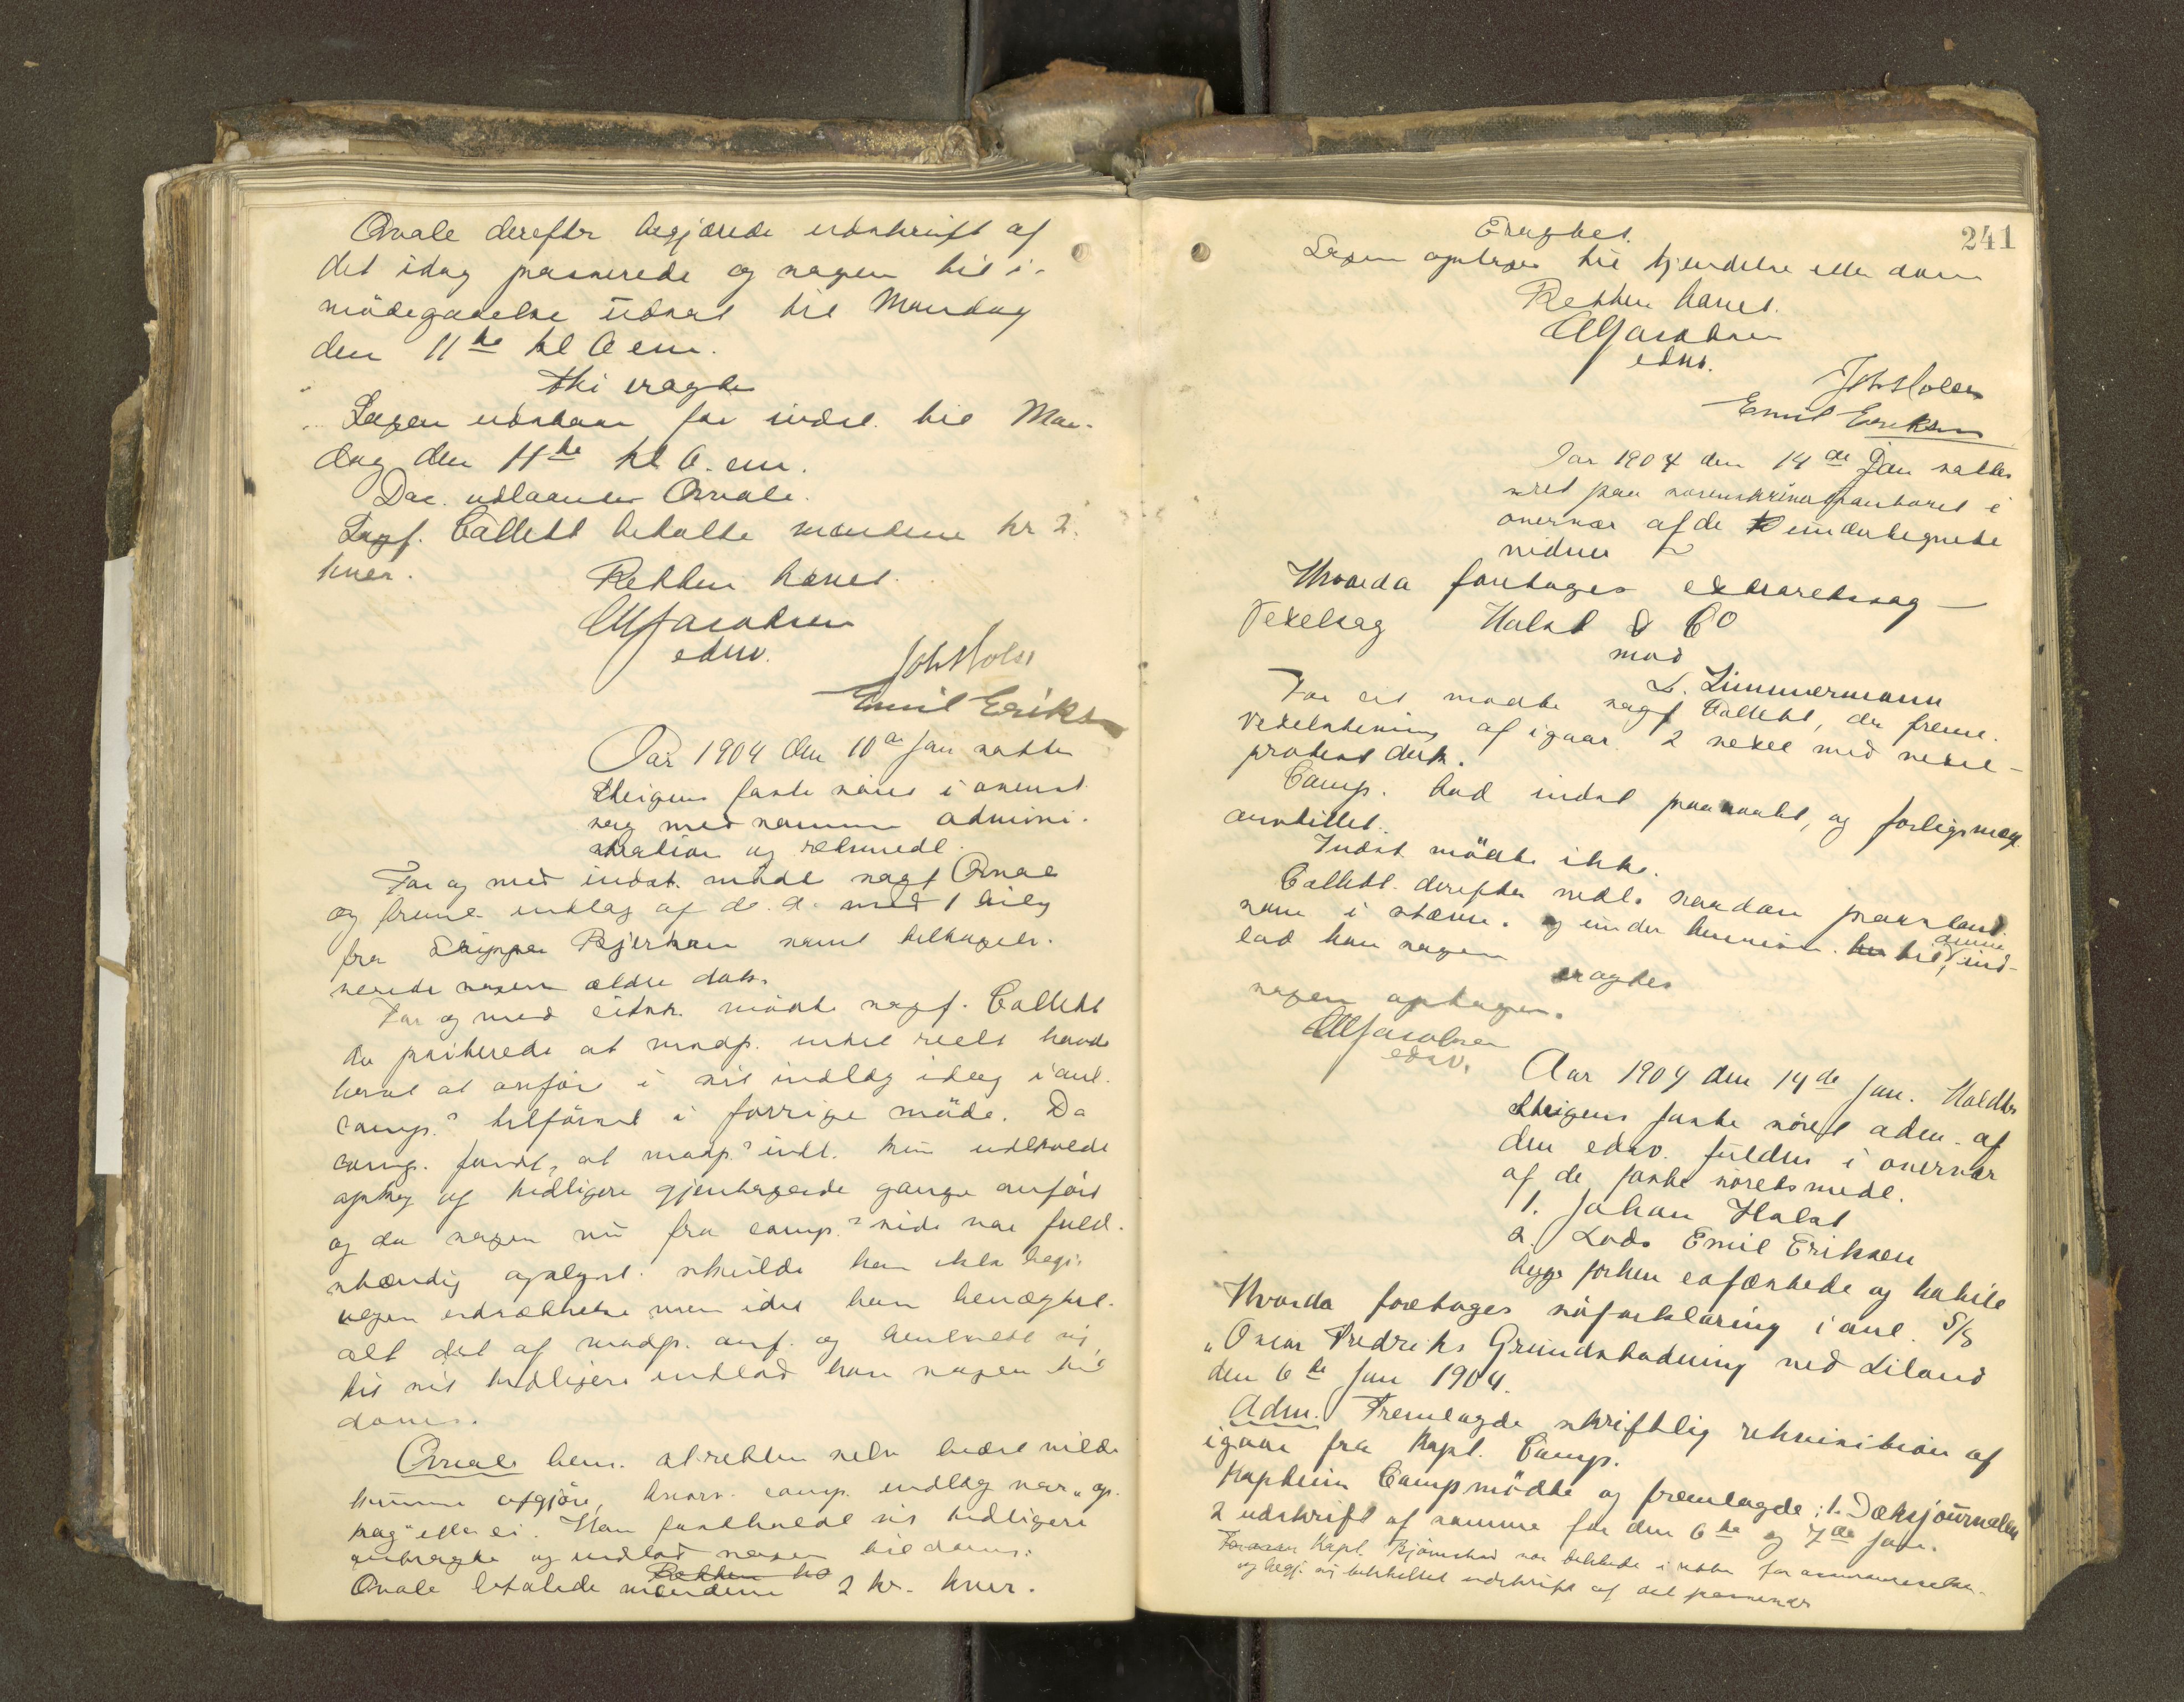 Qvale derefter begjærede udskrift af
det idag passerede og sagen til i-
mödegaaelse udsat til Mandag
den 11te kl 6 em.
thi eragtes
Sagen udstaar for indst. til Man-
dag den 11te kl 6. em.
Doc. udlaantes Qvale.
Sagf. Collett betalte mændene kr 2.
hver.
Retten hævet.
Alf Jacobsen
edsv.
Joh Holst
Emil Eriksen
Aar 1904 den 10de Jan sattes
Steigens faste söret i anent.
sag med samme admini-
stration og retsmedl.
For og med indst. mödte sagf Qvale
og freml. indlæg af d. d. med 1 bilag
fra Skipper Bjerkan samt tilbagele-
verede sagens ældre dok.
For og med citst. mödte sagf. Collett
der paaberede at modp. intet reelt havde
havt at anföre i sit indlæg idag i anl.
comp.s tilförsel i forrige möde. Da
comp. fandt, at modp.s indl. kun indeholdt
opkog af tidligere gjentagende gange anfört
og da sagen nu fra comp.s side var fuld-
stændig oplyst. skulde han ikke begj.
nogen udsættelse men idet han benægted.
alt det af modp. anf. og henholdt sig
til sit tidligere indlod han sagen til
doms.
Qvale bem. at retten selv bedst vilde
kunne afgjöre, hvorv. comp. indlæg var „op-
kog" eller ei. Han fastholdt sit tidligere
anbragte og indlod sagen til doms.
Retten hæ
Qvale betalede mændene 2 kr. hver.
241
Eragtet.
Sagen optages til kjendelse eller dom
Retten hævet.
Alf Jacobsen
edsv.
Joh Holst
Emil Eriksen
Aar 1904 den 14de Jan sattes
ret paa sorenskriverkontoret i
overvær af de undertegnede
vidner
Hvorda foretages extraretssag –
Vexelsag Holst & Co
mod
L. Zimmermann
For cit mödte sagf Collett, der freml.
vexelstevning af igaar. 2 vexel med vexel-
protest derh.
Comp. lod indst paaraabt, og forligsmægl.
anstillet.
Indst mödte ikke.
Collett. derefter nedl. saadan paastand
som i stævn. og under henvisn. til denne, ind-
lod han sagen
eragtes
sagen optagen.
Alf Jacobsen
edsv.
Aar 1904 den 14de Jan. Holdtes
Steigens faste söret adm. af
den edsv. fuldm. i overvær
af de faste söretsmedl.
1. Johan Holst
2. Lods Emil Eriksen
begge forhen eofæstede og habile
Hvorda foretages söforklaring i anl. S/S
„Oscar Fredriks Grundstödning ved Liland
den 6te Jan 1904.
Adm. Fremlagde skriftlig rekvisition af
igaar fra Kapt. Camp.
Kaptein Camp mödte og fremlagde: 1. Dæksjournalen
2 udskrift af samme for den 6te og 7de Jan.
Kapt. Björnstad var tilstede i retten for assuranceselsk.
og begj. sig tilstillet udskrift af det passerede